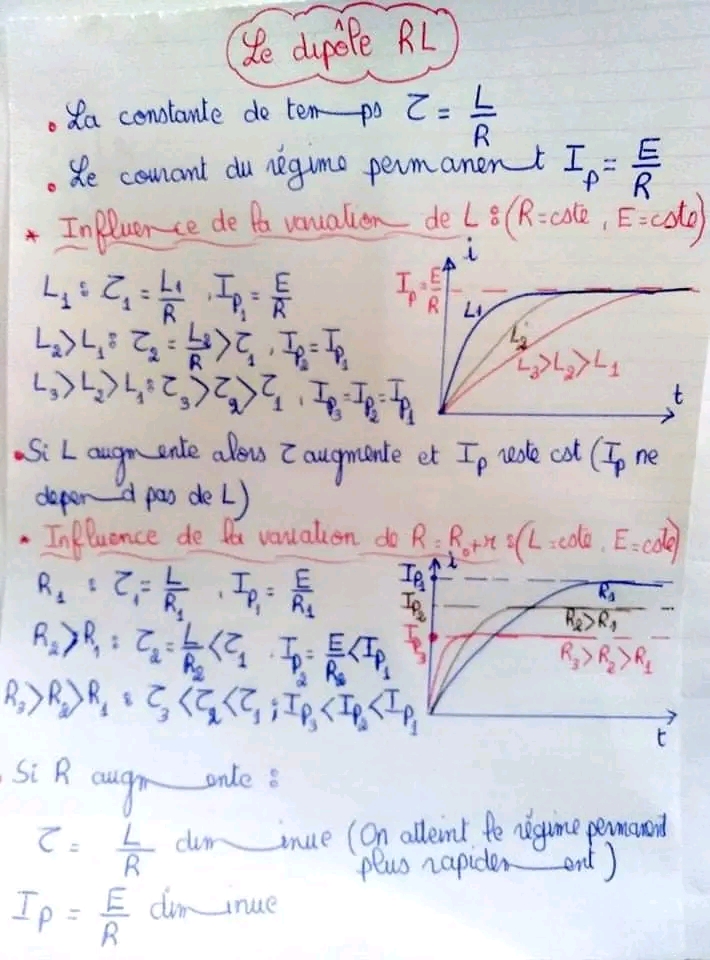 Le dipôle RL
• La constante de temps τ = L/R
• Le courant du régime permanent Ip = E/R
* Influence de la variation de L : (R=cste, E=cste)
L1 : τ1 = L1/R, Ip1 = E/R
L2>L1 : τ2 = L2/R > τ1, Ip2 = Ip1
L3>L2>L1 : τ3>τ2>τ1, Ip3=Ip2=Ip1
Ip = E/R
i
L1
L2
L3>L2>L1
t
• Si L augmente alors τ augmente et Ip reste cst (Ip ne
depend pas de L)
* Influence de la variation de R = R0+r : (L=cste, E=cste)
R1 : τ1 = L/R1, Ip1 = E/R1
R2>R1 : τ2 = L/R2 < τ1, Ip2 = E/R2 < Ip1
R3>R2>R1 : τ3<τ2<τ1 ; Ip3<Ip2<Ip1
i
Ip1
Ip2
Ip3
R1
R2>R1
R3>R2>R1
t
• Si R augmente :
τ = L/R diminue (On atteint le régime permanent
plus rapidement)
Ip = E/R diminue